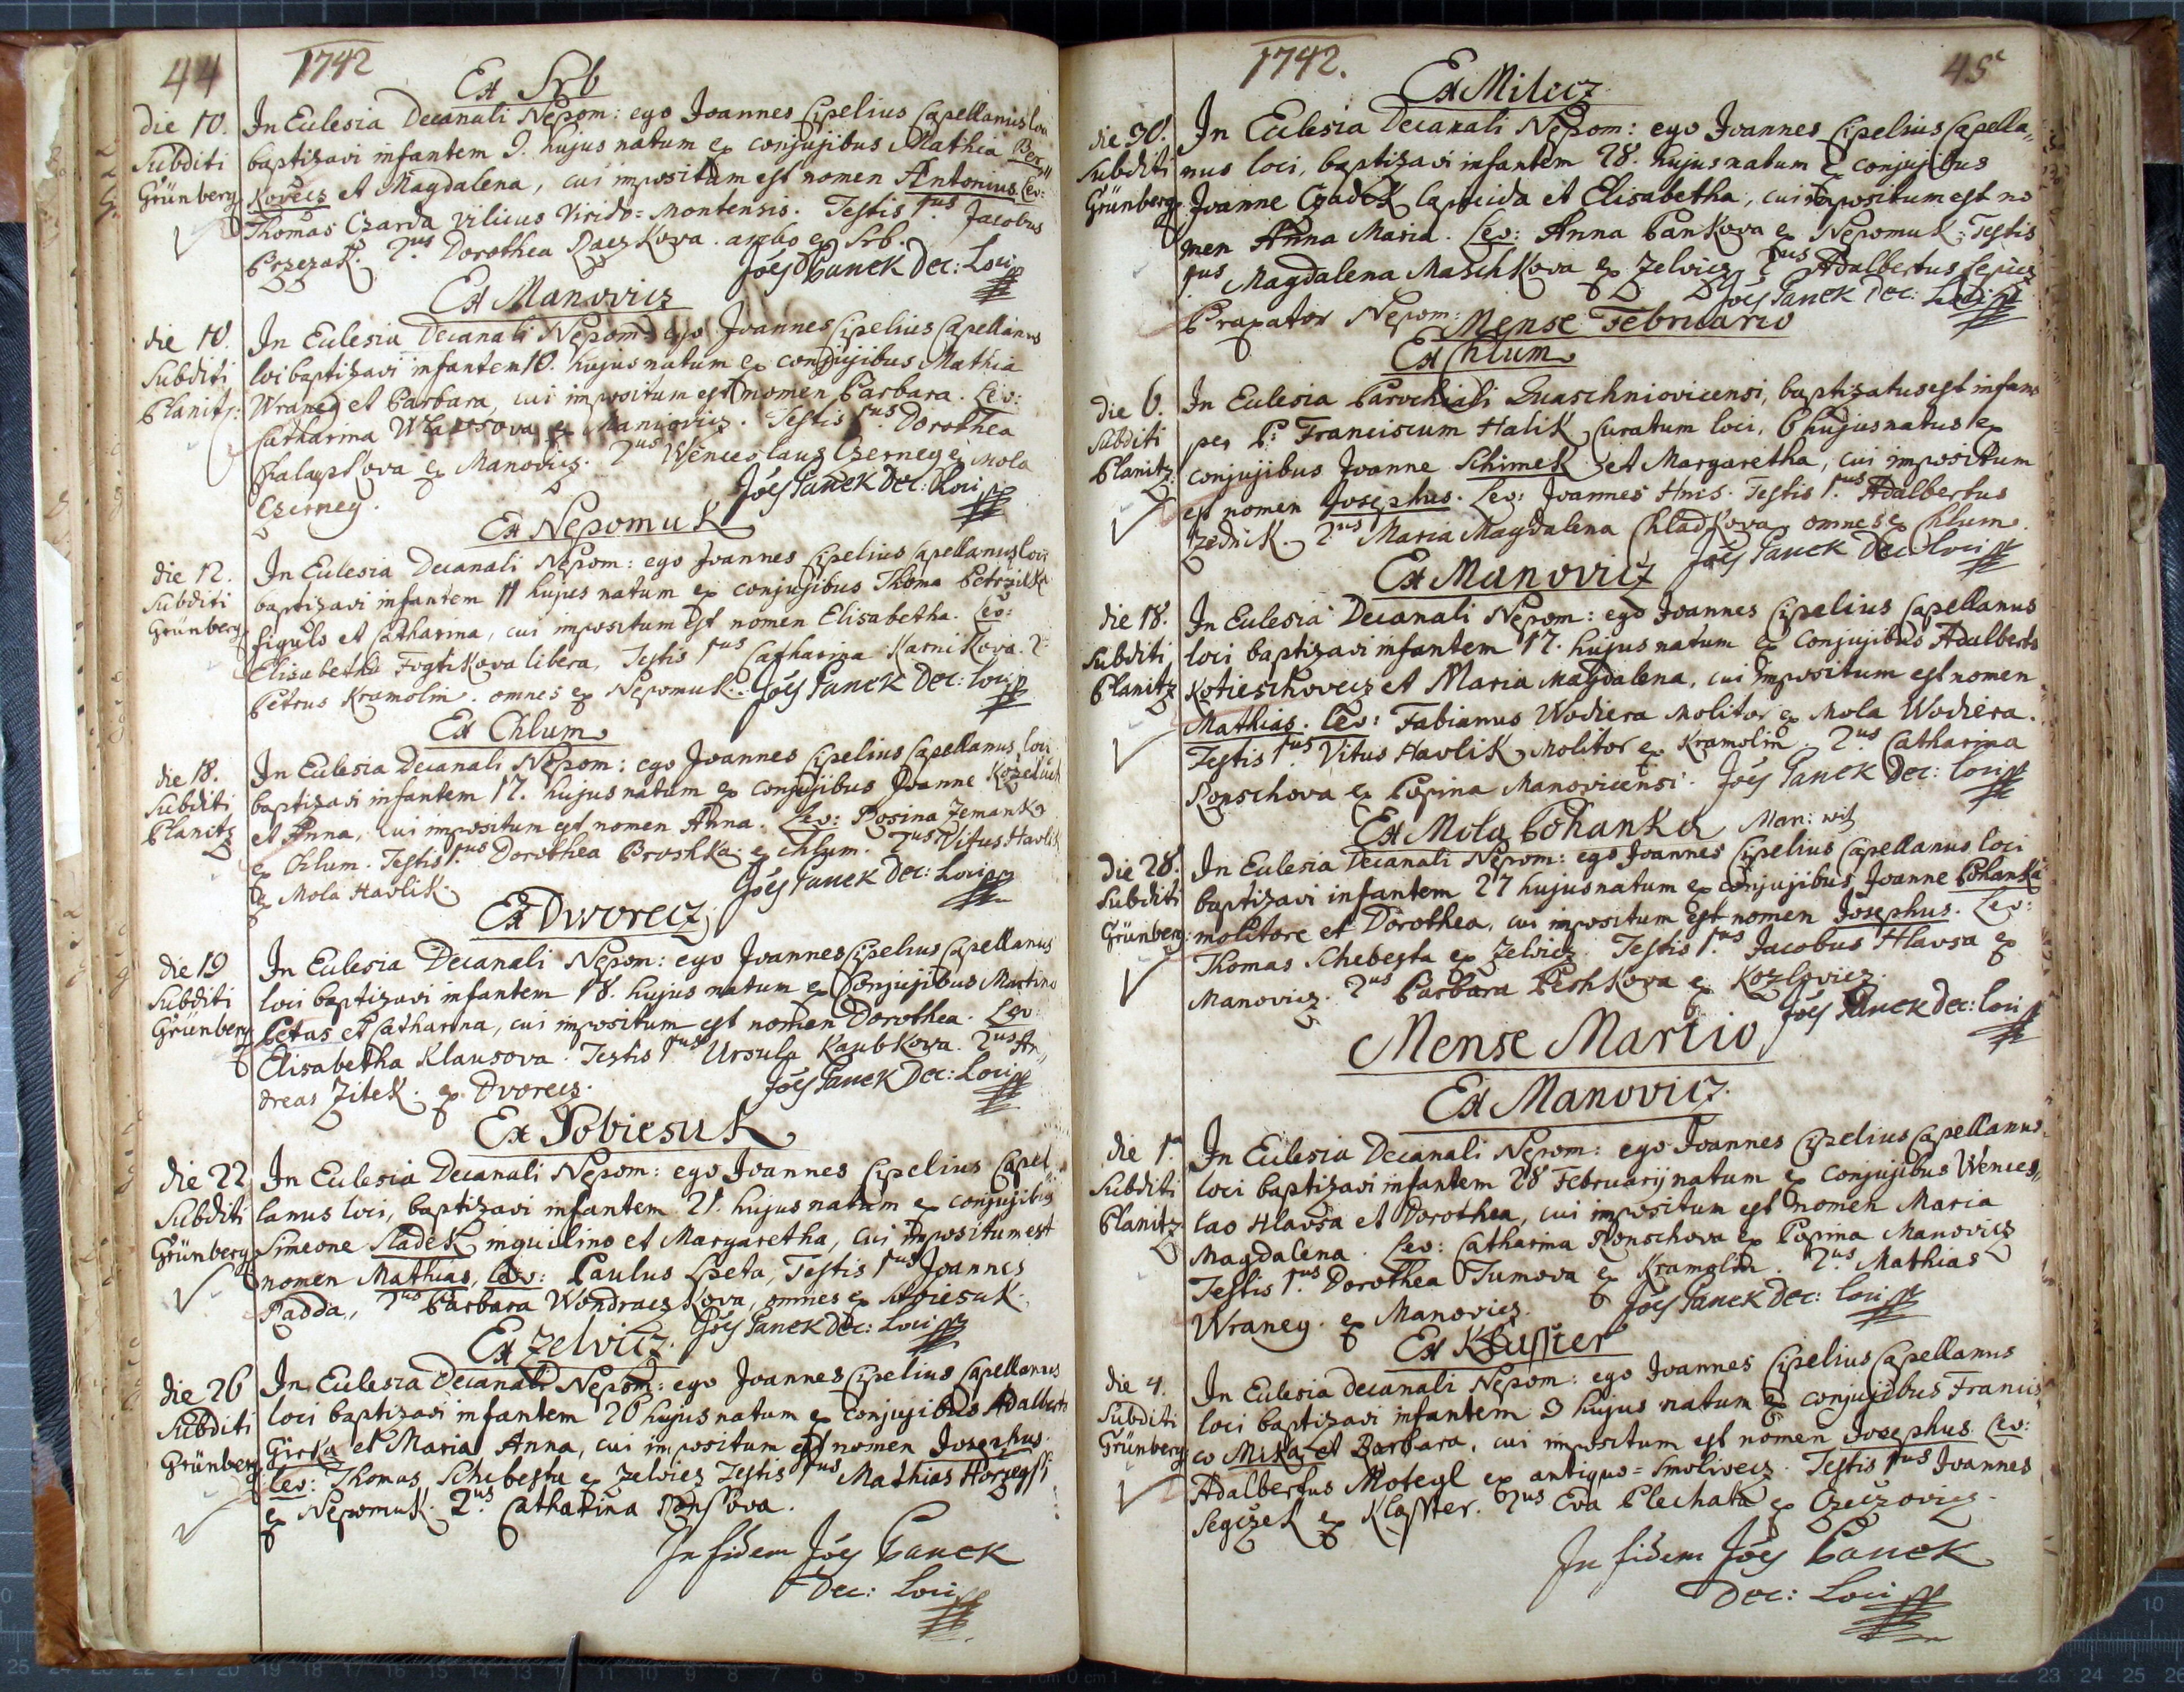 44 1742
Ex Srb
die 10. In Eclesia Decanali Nepom: ego Joannes Cipelius Capellanus loci
Subditi baptizavi infantem 9. hujus natum ex conjujibus Mathia Ber„
Grünberg Kovecz et Magdalena, cui impositum est nomen Antonius. Lev:
Thomas Czarda Vilicus Virido=Montensis. Testis 1us Jacobus
Przezak. 2us Dorothea Raczkova. ambo ex Srb.
Jões Panek Dec: Loci
Ex Manovicz
die 10. In Eclesia Decanali Nepom: ego Joannes Cipelius Capellanus
Subditi loci baptizavi infantem 10. hujus natum ex conjujibus Mathia
Planitz: Wraney et Barbara, cui impositum est nomen Barbara. Lev:
Catharina ex Maniovicz. Testis 1us Dorothea
ex Manovicz. 2us Wenceslaus Czerney ex Mola
Czerney. Jões Panek Dec: Loci
Ex Nepomuk
die 12. In Eclesia Decanali Nepom: ego Joannes Cipelius Capellanus loci
Subditi baptizavi infantem 11 hujus natum ex conjujibus Thoma Petrzilka
Grünberg figulo et Catharina, cui impositum est nomen Elisabetha. Lev:
Elisabetha Fogtikova libera, Testis 1us Catharina Karnikova. 2:
Petrus Kramolin. omnes ex Nepomuk. Jões Panek Dec: loci
Ex Chlum
die 18. In Eclesia Decanali Nepom: ego Joannes Cipelius Capellanus loci
Subditi baptizavi infantem 17. hujus natum ex conjujibus Joanne Kozeluch
Planitz et Anna, cui impositum est nomen Anna. Lev: Rosina Zemanka
ex Chlum. Testis 1us Dorothea Broshka ex Chlum. 2us Vitus Havlik
ex Mola Havlik. Jões Panek Dec: Loci
Ex Dworecz
die 19 In Eclesia Decanali Nepom: ego Joannes Cipelius Capellanus
Subditi loci baptizavi infantem 18. hujus natum ex Conjujibus Martino
Grünberg Petas et Catharina, cui impositum est nomen Dorothea. Lev:
Elisabetha Klausova. Testis 1us Ursula Kaubkova. 2us An„
dreas Zitek. ex Dvorecz. Jões Panek Dec: Loci
Ex Pobiesuk
die 22 In Eclesia Decanali Nepom: ego Joannes Cipelius Capel„
Subditi lanus loci, baptizavi infantem 21. hujus natum ex conjujibus
Grünberg Simeone Sladek inquilino et Margaretha, cui impositum est
nomen Mathias, Lev: Paulus Speta, Testis 1us Joannes
Padda, 2us Barbara Wondraczkova, omnes ex
Jões Panek Dec: Loci
Ex Zelvicz
die 26 In Eclesia Decanali Nepom: ego Joannes Cipelius Capellanus
Subditi loci baptizavi infantem 26 hujus natum ex conjujibus Adalberto
Grünberg Girka et Maria Anna, cui impositum est nomen Josephus.
Lev: Thomas Schebesta ex Zelvicz Testis 1us Mathias Horzegssi
ex Nepomuk. 2us Catharina
In fidem Jões Panek
Dec: Loci
1742. 45
Ex Milecz
die 30. In Eclesia Decanali Nepom: ego Joannes Cipelius Capella„
Subditi nus loci, baptizavi infantem 28. hujus natum ex conjujibus
Grünberg Joanne Czadek lapicida et Elisabetha, cui impositum est no
men Anna Maria. Lev: Anna Pankova ex Nepomuk. Testis
1us Magdalena Maschkova ex Zelvicz 2us Adalbertus Lepicz
Praxator Nepom: Jões Panek Dec: Loci
Mense Februario
Ex Chlum
die 6. In Eclesia Parochiali Quaschniovicensi, baptizatus est infans
Subditi per P: Franciscum Halik Curatum loci, 6 hujus natus ex
Planitz: conjujibus Joanne Schimek et Margaretha, cui impositum
est nomen Josephus. Lev: Joannes Hnis. Testis 1us Adalbertus
rzednik. 2us Maria Magdalena Chladkova, omnes ex Chlum.
Jões Panek Dec: Loci
Ex Manovicz
die 18. In Eclesia Decanali Nepom: ego Joannes Cipelius Capellanus
Subditi loci baptizavi infantem 17. hujus natum ex conjujibus Adalberto
Planitz Kotieschovecz et Maria Magdalena, cui impositum est nomen
Mathias. Lev: Fabianus Wodiera Molitor ex Mola Wodiera.
Testis 1us Vitus Havlik Molitor ex Kramolin. 2us Catharina
Ronschova ex Popina Manovicensi. Jões Panek Dec: loci
Ex Mola Pohanka Man: witz
die 28. In Eclesia Decanali Nepom: ego Joannes Cipelius Capellanus loci
Subditi baptizavi infantem 27 hujus natum ex conjujibus Joanne Pohanka
Grünberg: molitore et Dorothea, cui impositum est nomen Josephus. Lev:
Thomas Schebesta ex Zelvicz. Testis 1us Jacobus Hlavsa ex
Manovicz. 2us Barbara Peshkova ex Kozlovicz.
Jões Panek Dec: loci
Mense Martio
Ex Manovicz.
die 1a In Eclesia Decanali Nepom: ego Joannes Cipelius Capellanus
Subditi loci baptizavi infantem 28 Februarij natum ex conjujibus Wences„
Planitz lao Hlavsa et Dorothea, cui impositum est nomen Maria
Magdalena. Lev: Catharina Ronschova ex Popina Manovicz
Testis 1us Dorothea Tumova ex Kramolin. 2us Mathias
Wraney. ex Manovicz. Jões Panek Dec: loci
Ex Klasster
die 4. In Eclesia decanali Nepom: ego Joannes Cipelius Capellanus
Subditi loci baptizavi infantem 3 hujus natum ex conjujibus Francis
Grünberg co Mika et Barbara, cui impositum est nomen Josephus. Lev:
Adalbertus Motegl ex antiquo=Smolivecz. Testis 1us Joannes
Segczek ex Klasster. 2us Eva Plechata ex Czeczovicz.
In fidem Jões Panek
Dec: Loci